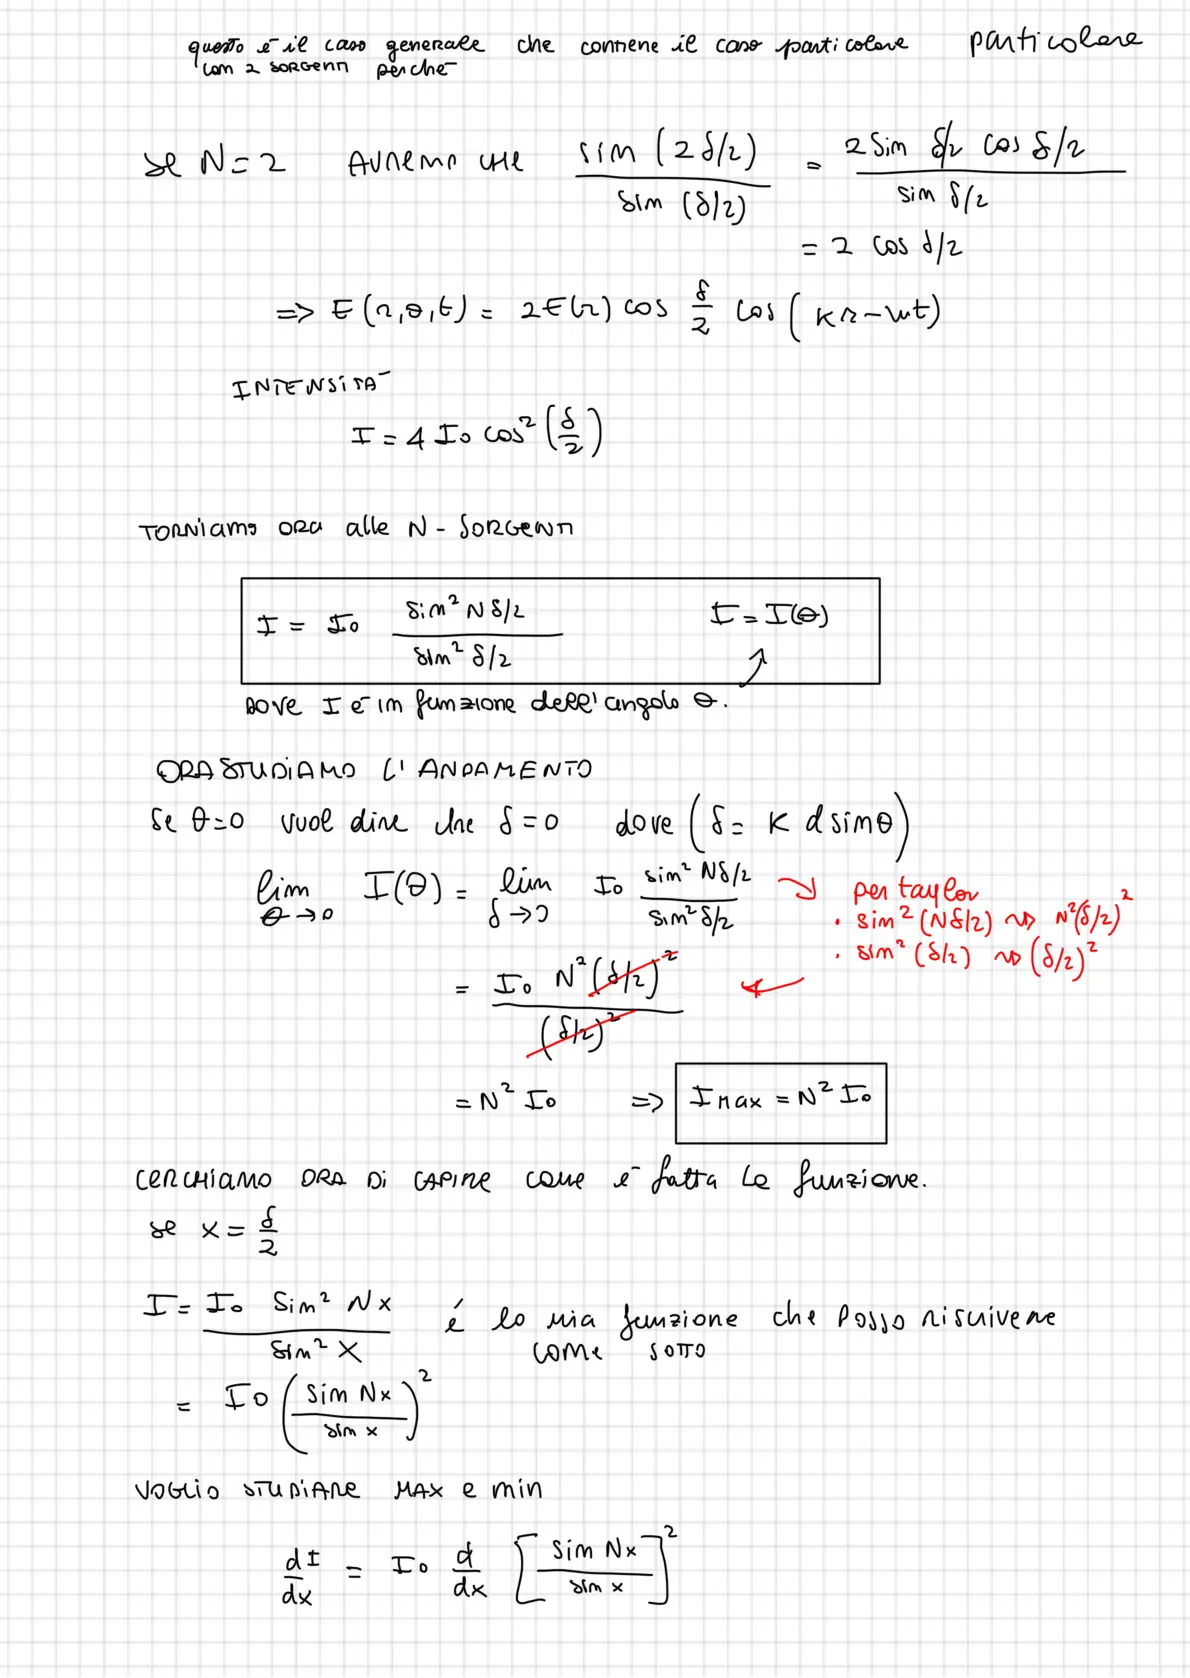 questo è il caso generale che contiene il caso particolare particolare
con 2 sorgenti perché
se N=2 avremo che sin(2δ/2)/sin(δ/2) = 2 sin δ/2 cos δ/2 / sin δ/2
= 2 cos δ/2
=> E(r,θ,t) = 2E(r) cos δ/2 cos(kr-wt)
INTENSITÀ
I = 4 I₀ cos² (δ/2)
TORNIAMO ORA alle N-SORGENTI
I = I₀ sin² Nδ/2 / sin² δ/2 I = I(θ)
DOVE I è in funzione dell'angolo θ.
ORA STUDIAMO L'ANDAMENTO
Se θ=0 vuol dire che δ=0 dove (δ = K d sinθ)
lim θ→0 I(θ) = lim δ→0 I₀ sin² Nδ/2 / sin² δ/2
per taylor
· sin² (Nδ/2) ⇝ N²(δ/2)²
· sin² (δ/2) ⇝ (δ/2)²
= I₀ N² (δ/2)² / (δ/2)²
= N² I₀ => I max = N² I₀
CERCHIAMO ORA DI CAPIRE come è fatta la funzione.
se x = δ/2
I = I₀ Sin² Nx / Sin² X è la mia funzione che posso riscrivere
come sotto
= I₀ (sin Nx / sin x)²
VOGLIO STUDIARE MAX e min
dI/dx = I₀ d/dx [sin Nx / sin x]²